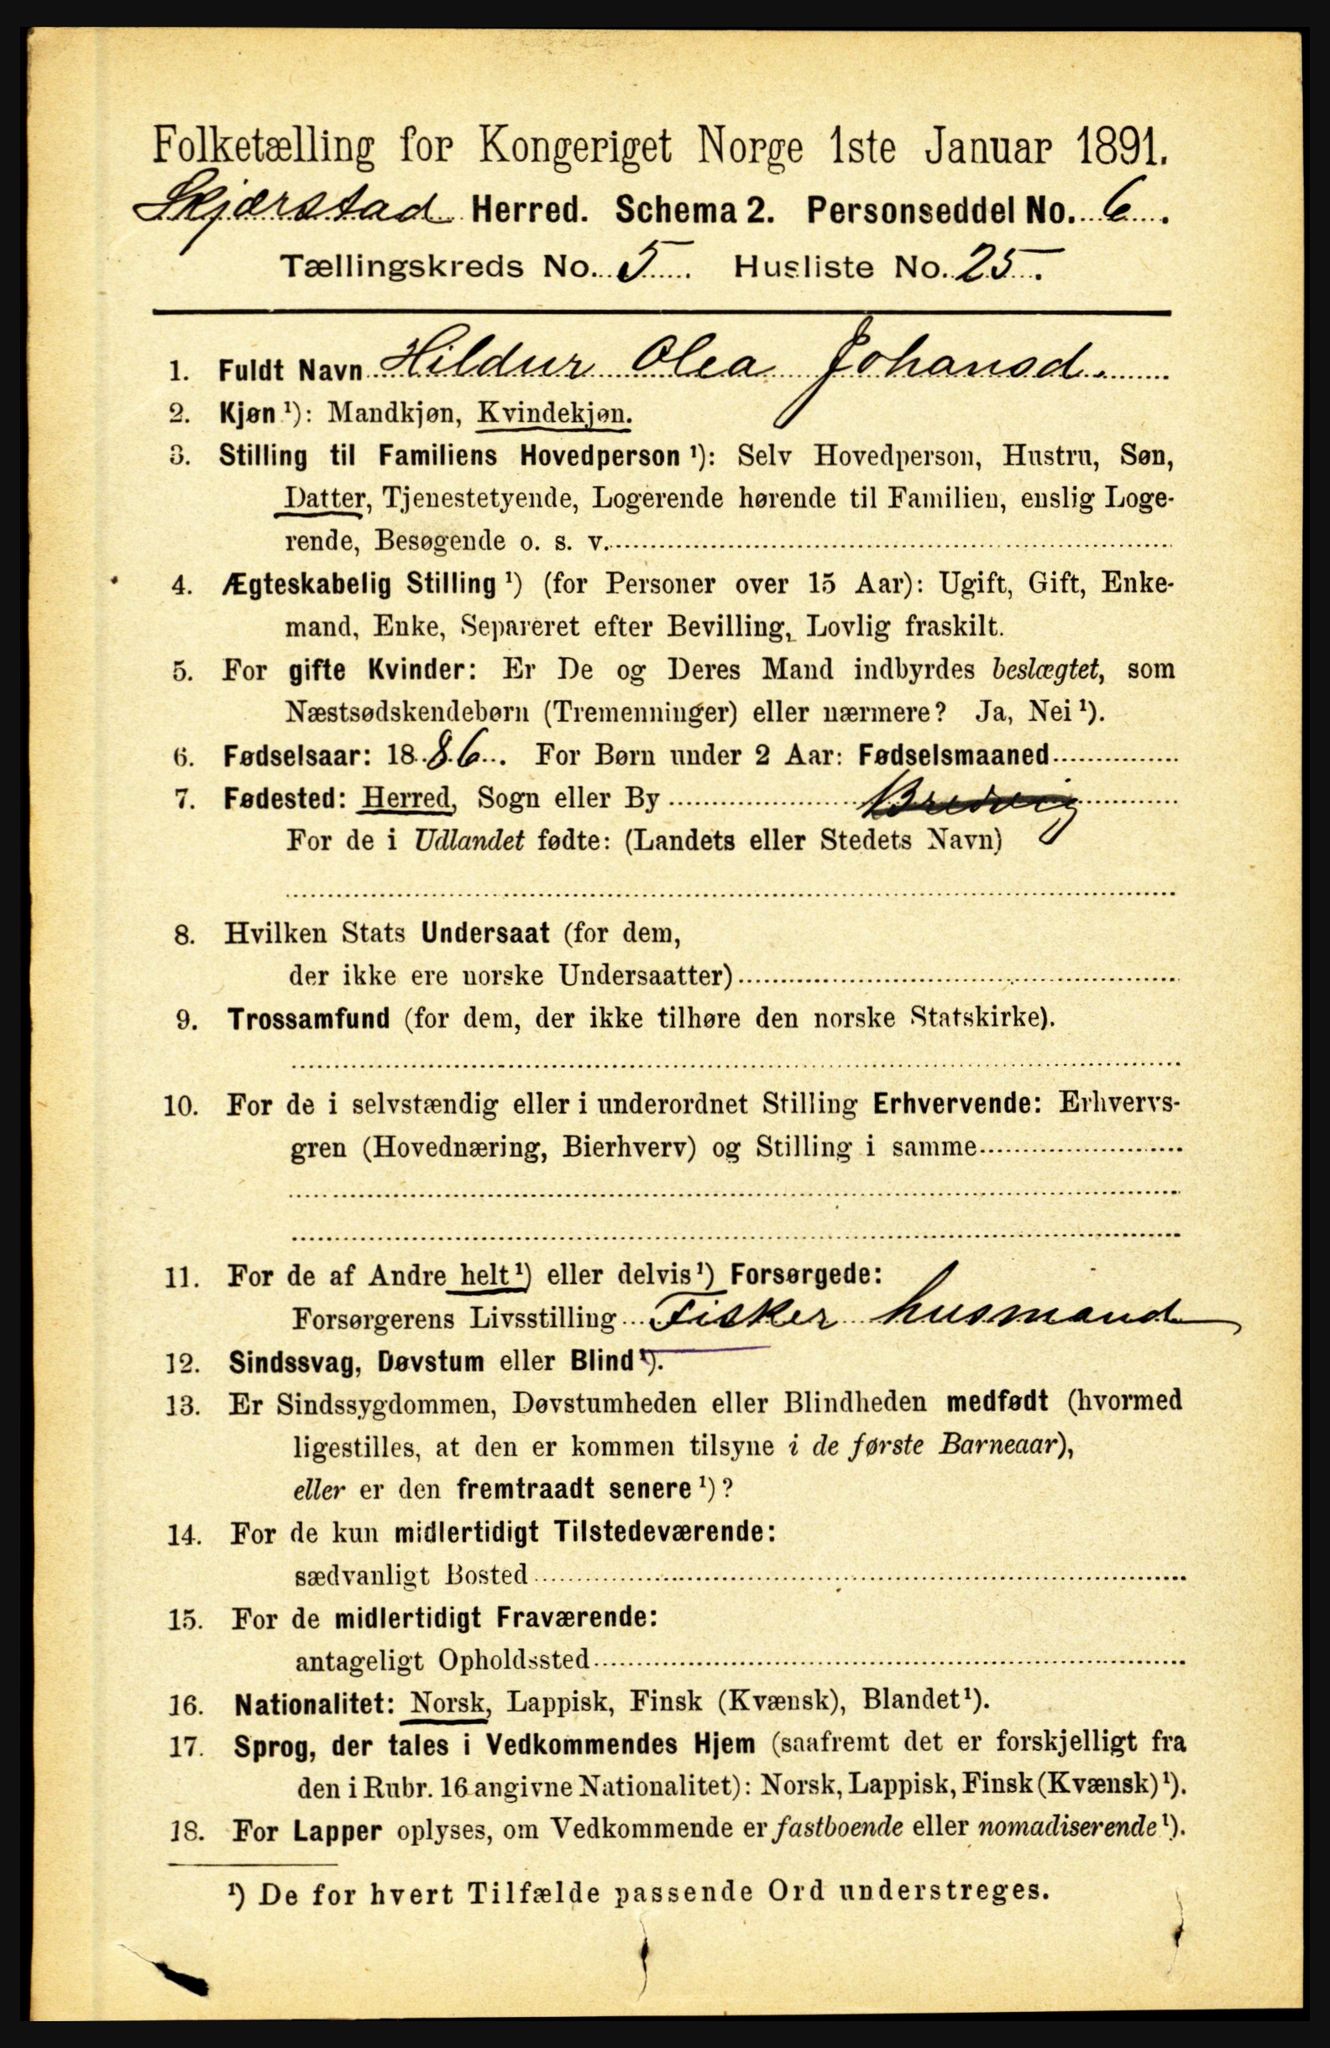 Folketælling for Kongeriget Norge 1ste Januar 1891.
Skjærstad Herred. Schema 2. Personseddel No. 6.
Tællingskreds No. 5. Husliste No. 25.
1. Fuldt Navn Hildur Olea Johansd.
2. Kjøn ¹): Mandkjøn, Kvindekjøn.
3. Stilling til Familiens Hovedperson ¹): Selv Hovedperson, Hustru, Søn,
Datter, Tjenestetyende, Logerende hørende til Familien, enslig Loge-
rende, Besøgende o. s. v.
4. Ægteskabelig Stilling ¹) (for Personer over 15 Aar): Ugift, Gift, Enke-
mand, Enke, Separeret efter Bevilling, Lovlig fraskilt.
5. For gifte Kvinder: Er De og Deres Mand indbyrdes beslægtet, som
Næstsødskendebørn (Tremenninger) eller nærmere? Ja, Nei ¹).
6. Fødselsaar: 1886. For Børn under 2 Aar: Fødselsmaaned
7. Fødested: Herred, Sogn eller By Bredvig
For de i Udlandet fødte: (Landets eller Stedets Navn)
8. Hvilken Stats Undersaat (for dem,
der ikke ere norske Undersaatter)
9. Trossamfund (for dem, der ikke tilhøre den norske Statskirke).
10. For de i selvstændig eller i underordnet Stilling Erhvervende: Erhvervs-
gren (Hovednæring, Bierhverv) og Stilling i samme
11. For de af Andre helt ¹) eller delvis ¹) Forsørgede:
Forsørgerens Livsstilling Fisker husmand
12. Sindssvag, Døvstum eller Blind ¹).
13. Er Sindssygdommen, Døvstumheden eller Blindheden medfødt (hvormed
ligestilles, at den er kommen tilsyne i de første Barneaar),
eller er den fremtraadt senere ¹)?
14. For de kun midlertidigt Tilstedeværende:
sædvanligt Bosted
15. For de midlertidigt Fraværende:
antageligt Opholdssted
16. Nationalitet: Norsk, Lappisk, Finsk (Kvænsk), Blandet ¹).
17. Sprog, der tales i Vedkommendes Hjem (saafremt det er forskjelligt fra
den i Rubr. 16 angivne Nationalitet): Norsk, Lappisk, Finsk (Kvænsk) ¹).
18. For Lapper oplyses, om Vedkommende er fastboende eller nomadiserende ¹).
¹) De for hvert Tilfælde passende Ord understreges.